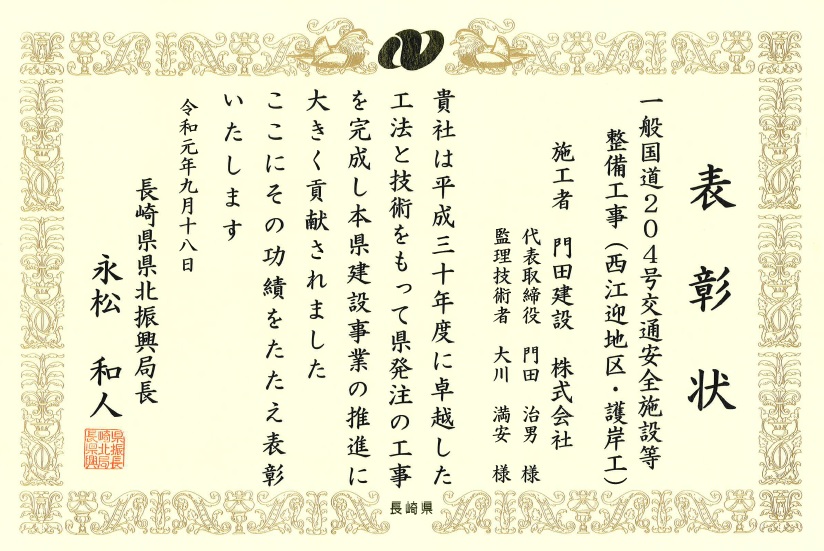 表彰状
一般国道204号交通安全施設等
整備工事(西江迎地区・護岸工)
施工者 門田建設 株式会社
代表取締役 門田 治男 様
監理技術者 大川 満安 様
貴社は平成三十年度に卓越した
工法と技術をもって県発注の工事
を完成し本県建設事業の推進に
大きく貢献されました
ここにその功績をたたえ表彰
いたします
令和元年九月十八日
長崎県県北振興局長
永松 和人
長崎県